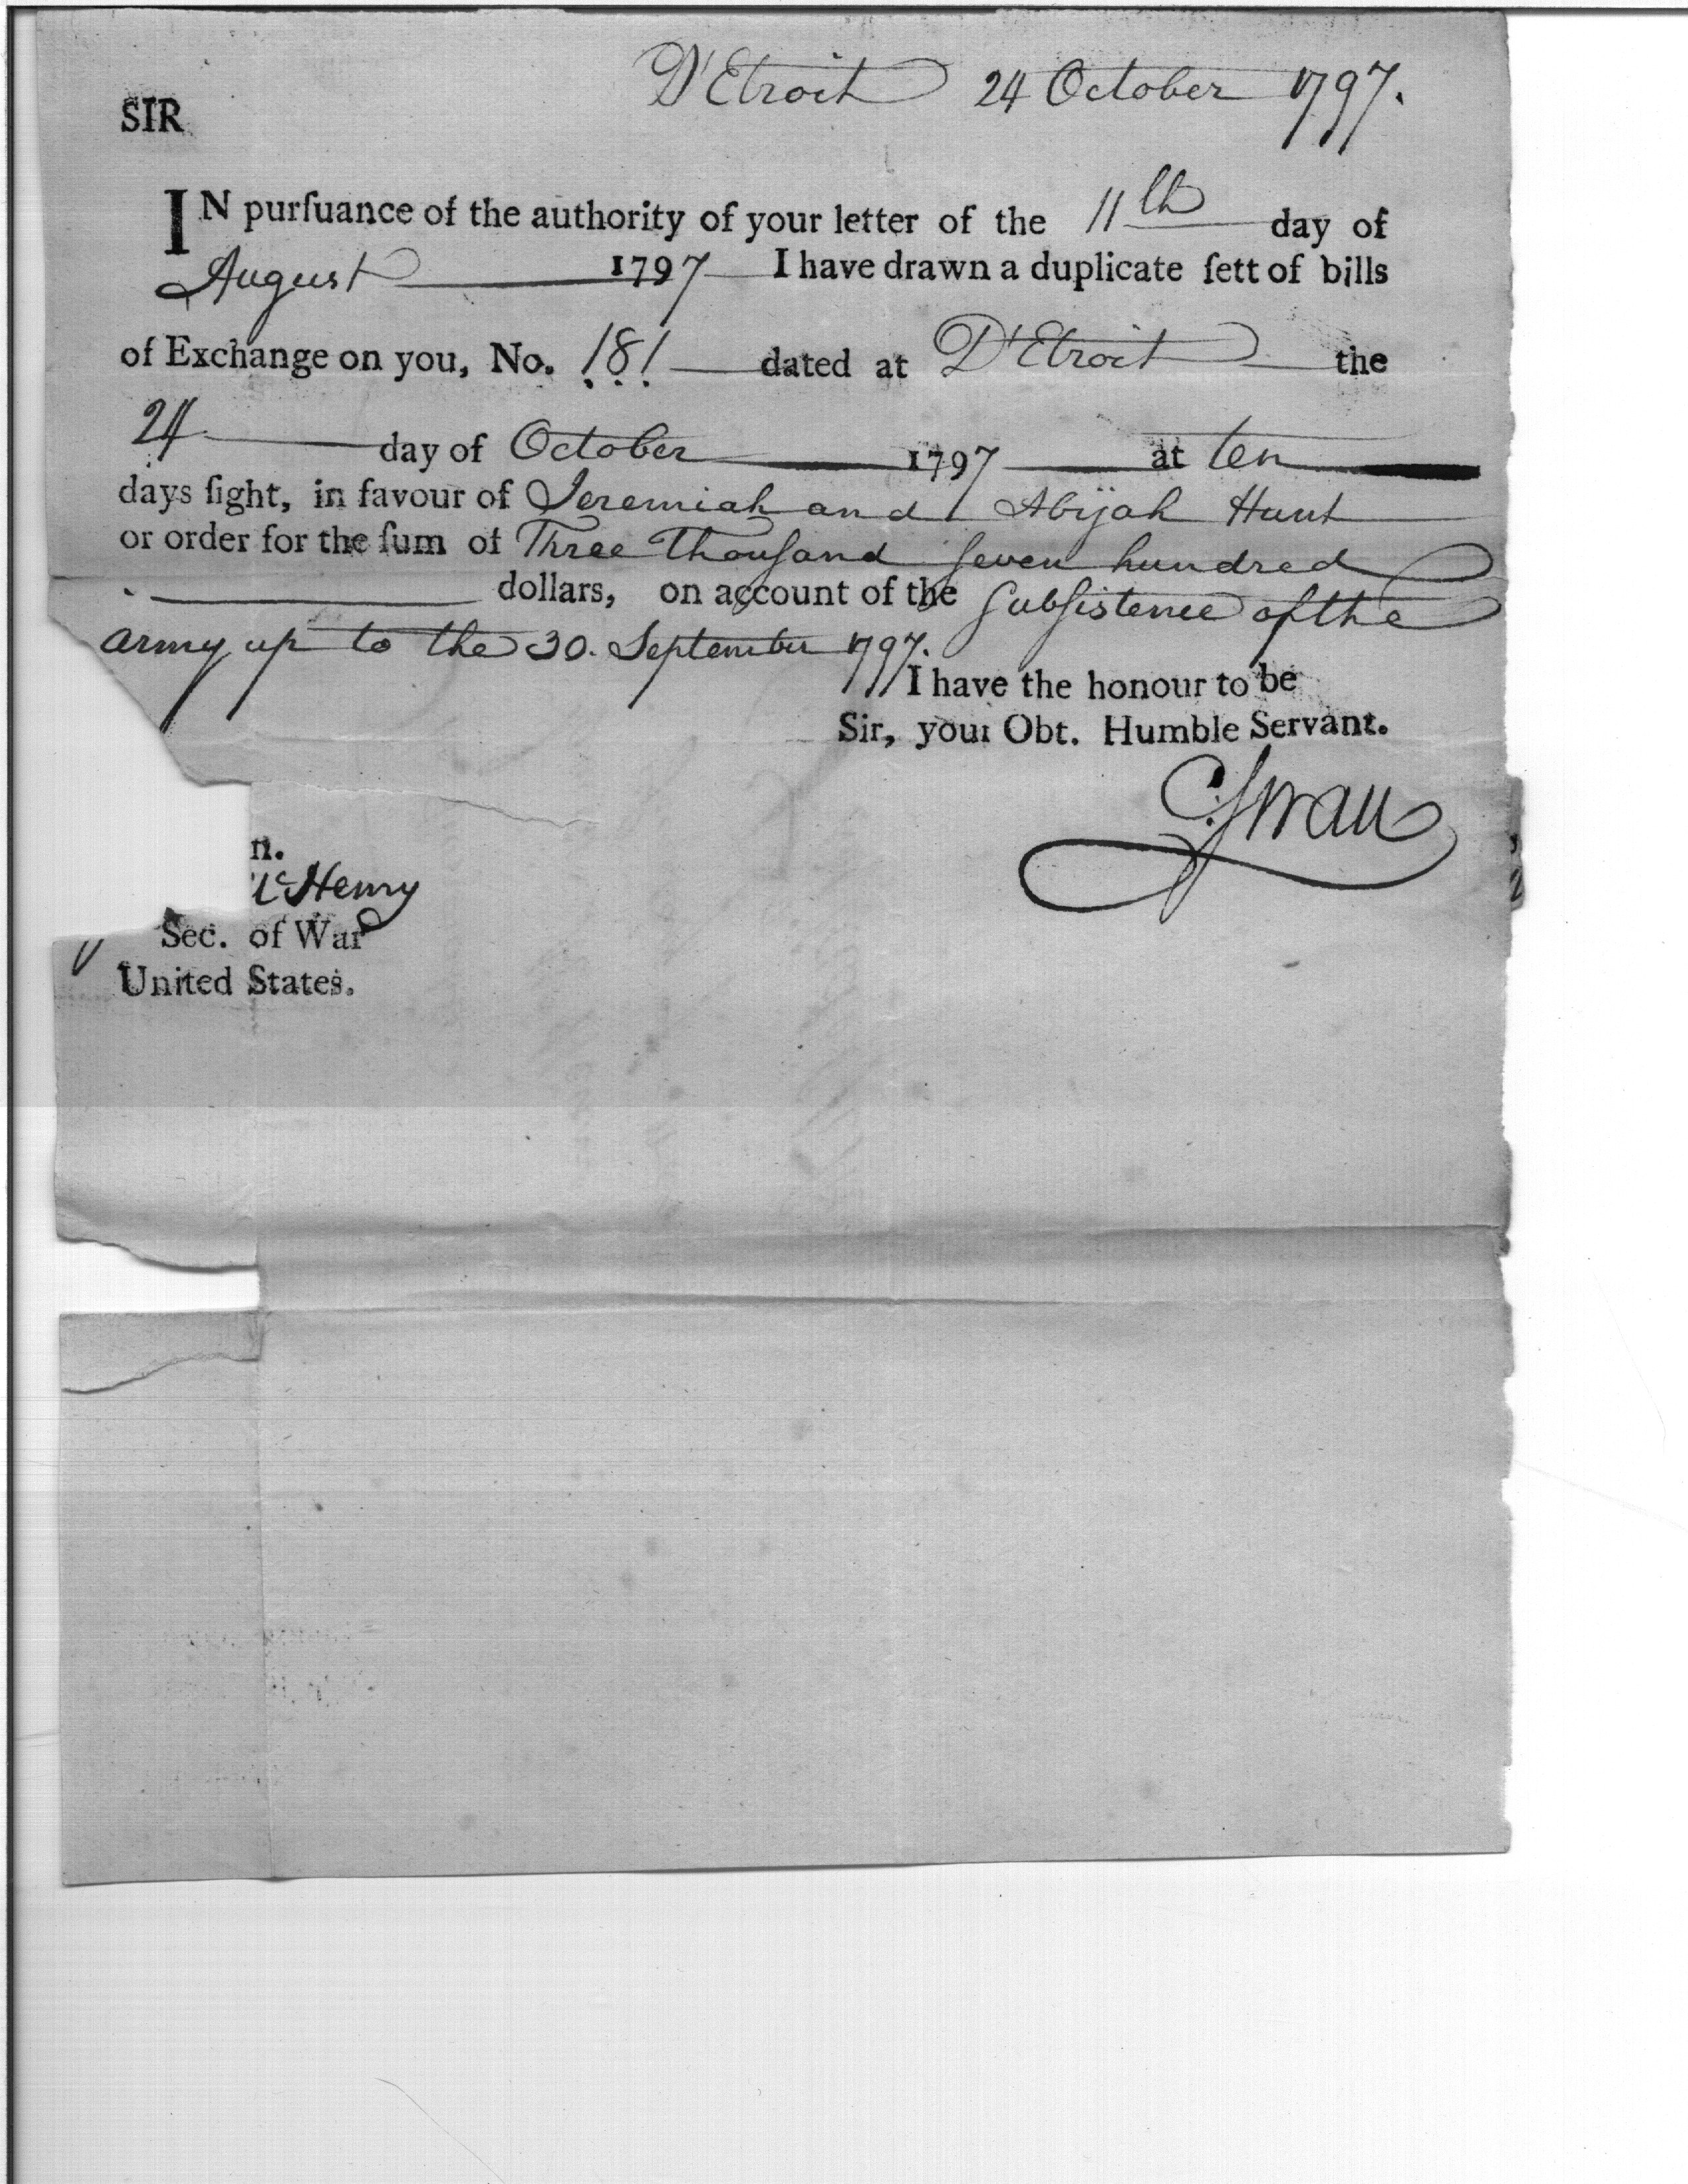 D'Etroit 24 October 1797.
SIR
IN purſuance of the authority of your letter of the 11th day of
August 1797 I have drawn a duplicate ſett of bills
of Exchange on you, No. 181 dated at D'Etroit the
24 day of October 1797 at ten
days ſight, in favour of Jeremiah and Abijah Hunt
or order for the ſum of Three Thouſand ſeven hundred
dollars, on account of the Subſistence of the
army up to the 30. September 1797.
I have the honour to be
Sir, your Obt. Humble Servant.
C. Swan
n.
McHenry
Sec. of War
United States.